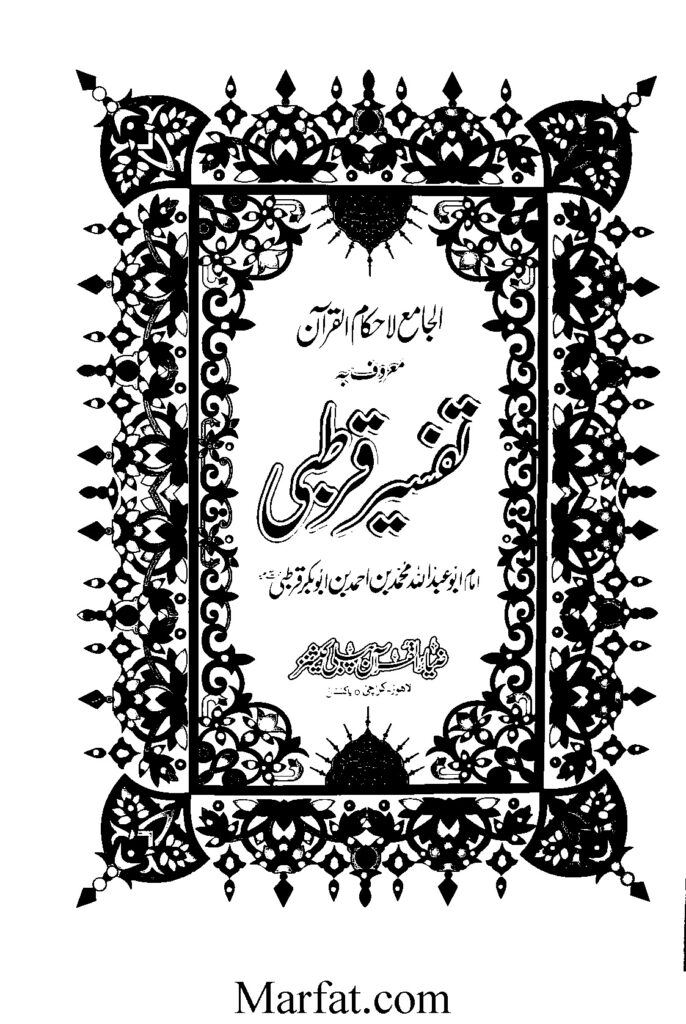 الجامع لاحکام القرآن
معروف بہ
تفسیر قرطبی
امام ابو عبداللہ محمد بن احمد بن ابوبکر قرطبی
ضیاء القرآن پبلی کیشنز
لاہور۔کراچی ٥ پاکستان
Marfat.com